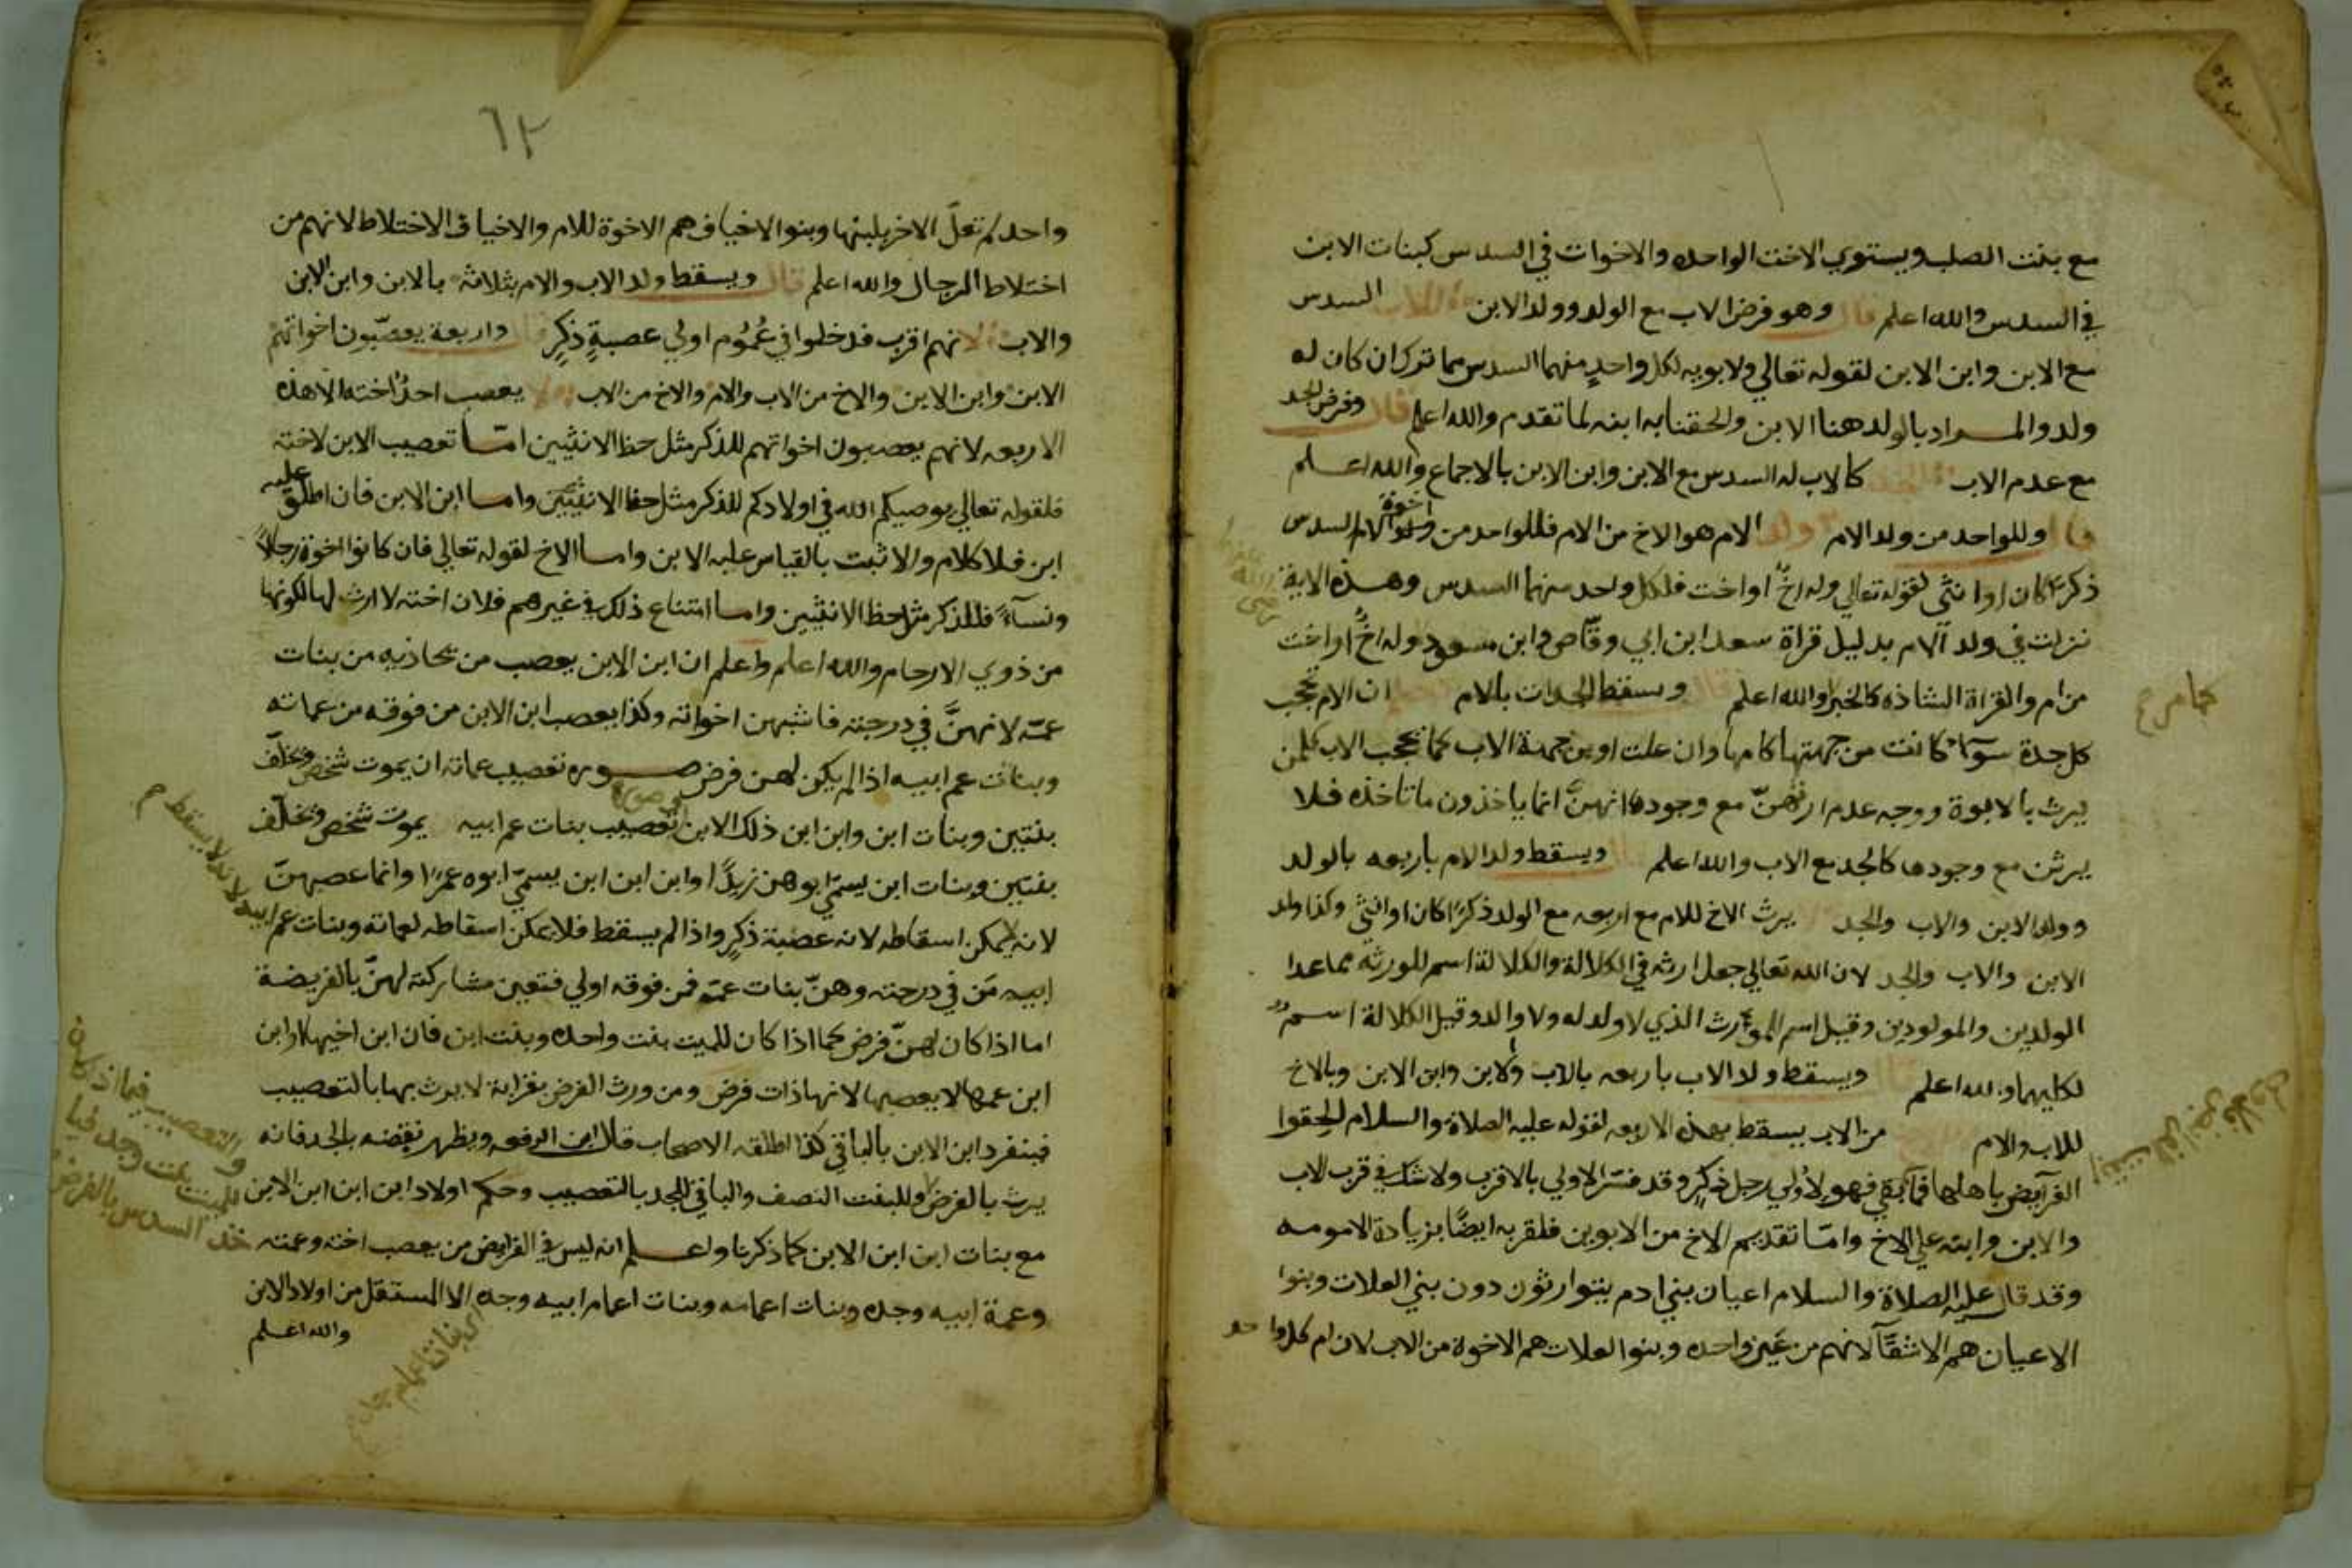 مع بنت الصلب ويستوي الاخت الواحده والاخوات في السدس كبنات الابن
في السدس والله اعلم قال وهو فرض الاب مع الولد وولد الابن للاب السدس
مع الابن وابن الابن لقوله تعالي ولابويه لكل واحدٍ منهما السدس مما ترك ان كان له
ولد والمراد بالولد هنا الابن والحقنا به ابنه لما تقدم والله اعلم قال وفرض الجد
مع عدم الاب الجد كالاب له السدس مع الابن وابن الابن بالاجماع والله اعلم
قال وللواحد من ولد الام ولد الام هو الاخ من الام فللواحد من اخوة الام السدس
ذكرًا كان او انثي لقوله تعالي وله اخٌ او اخت فلكل واحد منهما السدس وهذه الاية
نزلت في ولد الام بدليل قراة سعد ابن ابي وقّاص وابن مسعود وله اخٌ او اخت
من ام والقراة الشاذه كالخبر والله اعلم قال ويسقط الجدات بالام ان الام تحجب
كل جدة سوآء كانت من جهتها كامها وان علت او من جهة الاب كما تحجب الاب كل من
يرث بالابوة ووجه عدم ارثهنّ مع وجودها انهنّ انما ياخذون ما تاخذه فلا
يرثن مع وجودها كالجد مع الاب والله اعلم قال ويسقط ولد الام باربعه بالولد
وولد الابن والاب والجد لا يرث الاخ للام مع اربعه مع الولد ذكرًا كان او انثي وكذا ولد
الابن والاب والجد لان الله تعالي جعل ارثه في الكلالة والكلالة اسم للورثه مما عدا
الولدين والمولودين وقيل اسم الموّرث الذي لا ولد له ولا والد وقيل الكلالة اسمٌ
لكليهما والله اعلم قال ويسقط ولد الاب باربعه بالاب والابن وابن الابن وبالاخ
للاب والام من الاب يسقط بهذه الاربعه لقوله عليه الصلاة والسلام الحقوا
الفرآيض باهلها فما بقي فهو لاولي رجل ذكرٍ وقد فسّر الاولي بالاقرب ولا شك في قرب الاب
والابن وابنه علي الاخ وامّا تقديم الاخ من الابوين فلقربه ايضًا بزيادة الامومه
وقد قال عليه الصلاة والسلام اعيان بني ادم يتوارثون دون بني العلات وبنوا
الاعيان هم الاشقآ لانهم من عين واحده وبنوا العلات هم الاخوة من الاب لان ام كل واحد
٦٢
واحد لم تعلّ الاخر بلبنها وبنوا الاخياف هم الاخوة للام والاخياف الاختلاط لانهم من
اختلاط الرجال والله اعلم قال ويسقط ولد الاب والام بثلاثه بالابن وابن الابن
والاب لانهم اقرب فدخلوا في عُمُوم اولي عصبةٍ ذكرٍ قال واربعة يعصّبون اخواتهم
الابن وابن الابن والاخ من الاب والام والاخ من الاب ولا يعصب احدٌ اخته الا هذه
الاربعه لانهم يعصبون اخواتهم للذكر مثل حظ الانثيين امّا تعصيب الابن لاخته
فلقوله تعالي يوصيكم الله في اولادكم للذكر مثل حظ الانثيين واما ابن الابن فان اطلق عليه
ابن فلا كلام والا ثبت بالقياس علىه الابن واما الاخ لقوله تعالي فان كانوا اخوة رجالاً
ونسآءً فللذكر مثل حظ الانثيين واما امتناع ذلك في غيرهم فلان اخته لا ارث لها لكونها
من ذوي الارحام والله اعلم واعلم ان ابن الابن يعصب من يحاذيه من بنات
عمّه لانهنَّ في درجته فاشبهن اخواته وكذا يعصب ابن الابن من فوقه من عماته
وبنات عم ابيه اذا لم يكن لهن فرض صوره تعصيب عماته ان يموت شخص وتخلّف
بنتين وبنات ابن وابن ابن ذلك الابن تعصيب بنات عم ابيه يموت شخص وتخلّف
بنتين وبنات ابن يسمّي ابوهن زيدًا وابن ابن ابن يسمّي ابوه عمرًا وانما عصبهنّ
لانه لا يمكن اسقاطه لانه عصبة ذكرٍ واذا لم يسقط فلا يمكن اسقاطه لعماته وبنات عم
ابيه مَن في درجته وهنّ بنات عمّه فمن فوقه اولي فتعين مشاركته لهنّ بالفريضة
اما اذا كان لهنّ فرض كما اذا كان للميت بنت واحده وبنت ابن فان ابن اخيها او ابن
ابن عمها لا يعصبها لانها ذات فرض ومن ورث الفرض بقرابة لا يرث بها بالتعصيب
فينفرد ابن الابن بالباقي كذا اطلقه الاصحاب قال ابن الرفعه ويظهر نقضه بالجد فانه
يرث بالفرض وللبنت النصف والباقي للجد بالتعصيب وحكم اولاد ابن ابن ابن الابن
مع بنات ابن ابن الابن كما ذكرنا واعلم انه ليس في الفرايض من يعصب اخته وعمته
وعمة ابيه وجده وبنات اعمامه وبنات اعمام ابيه وجده الا المستقل من اولاد الابن
والله اعلم
ابيه لانه لا يسقط م
والتعصيب فيما اذا كان
للميت بنت وجد فيا
خذ السدس بالفرض